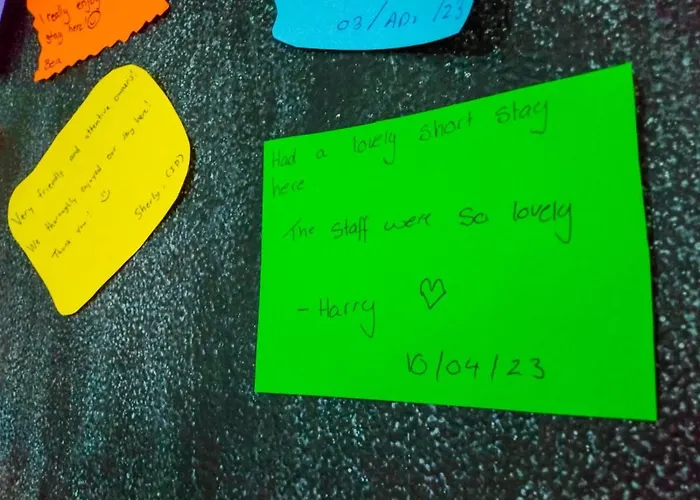 I really enjoy
stay here!
03/API /23
Very friendly and attentive owners!
We thoroughly enjoyed our stay here!
Thank you!
Had a lovely short stay
here.
The staff were so lovely
- Harry
10/04/23